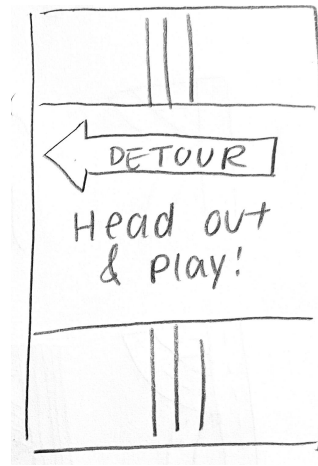 DETOUR
Head out
& play!